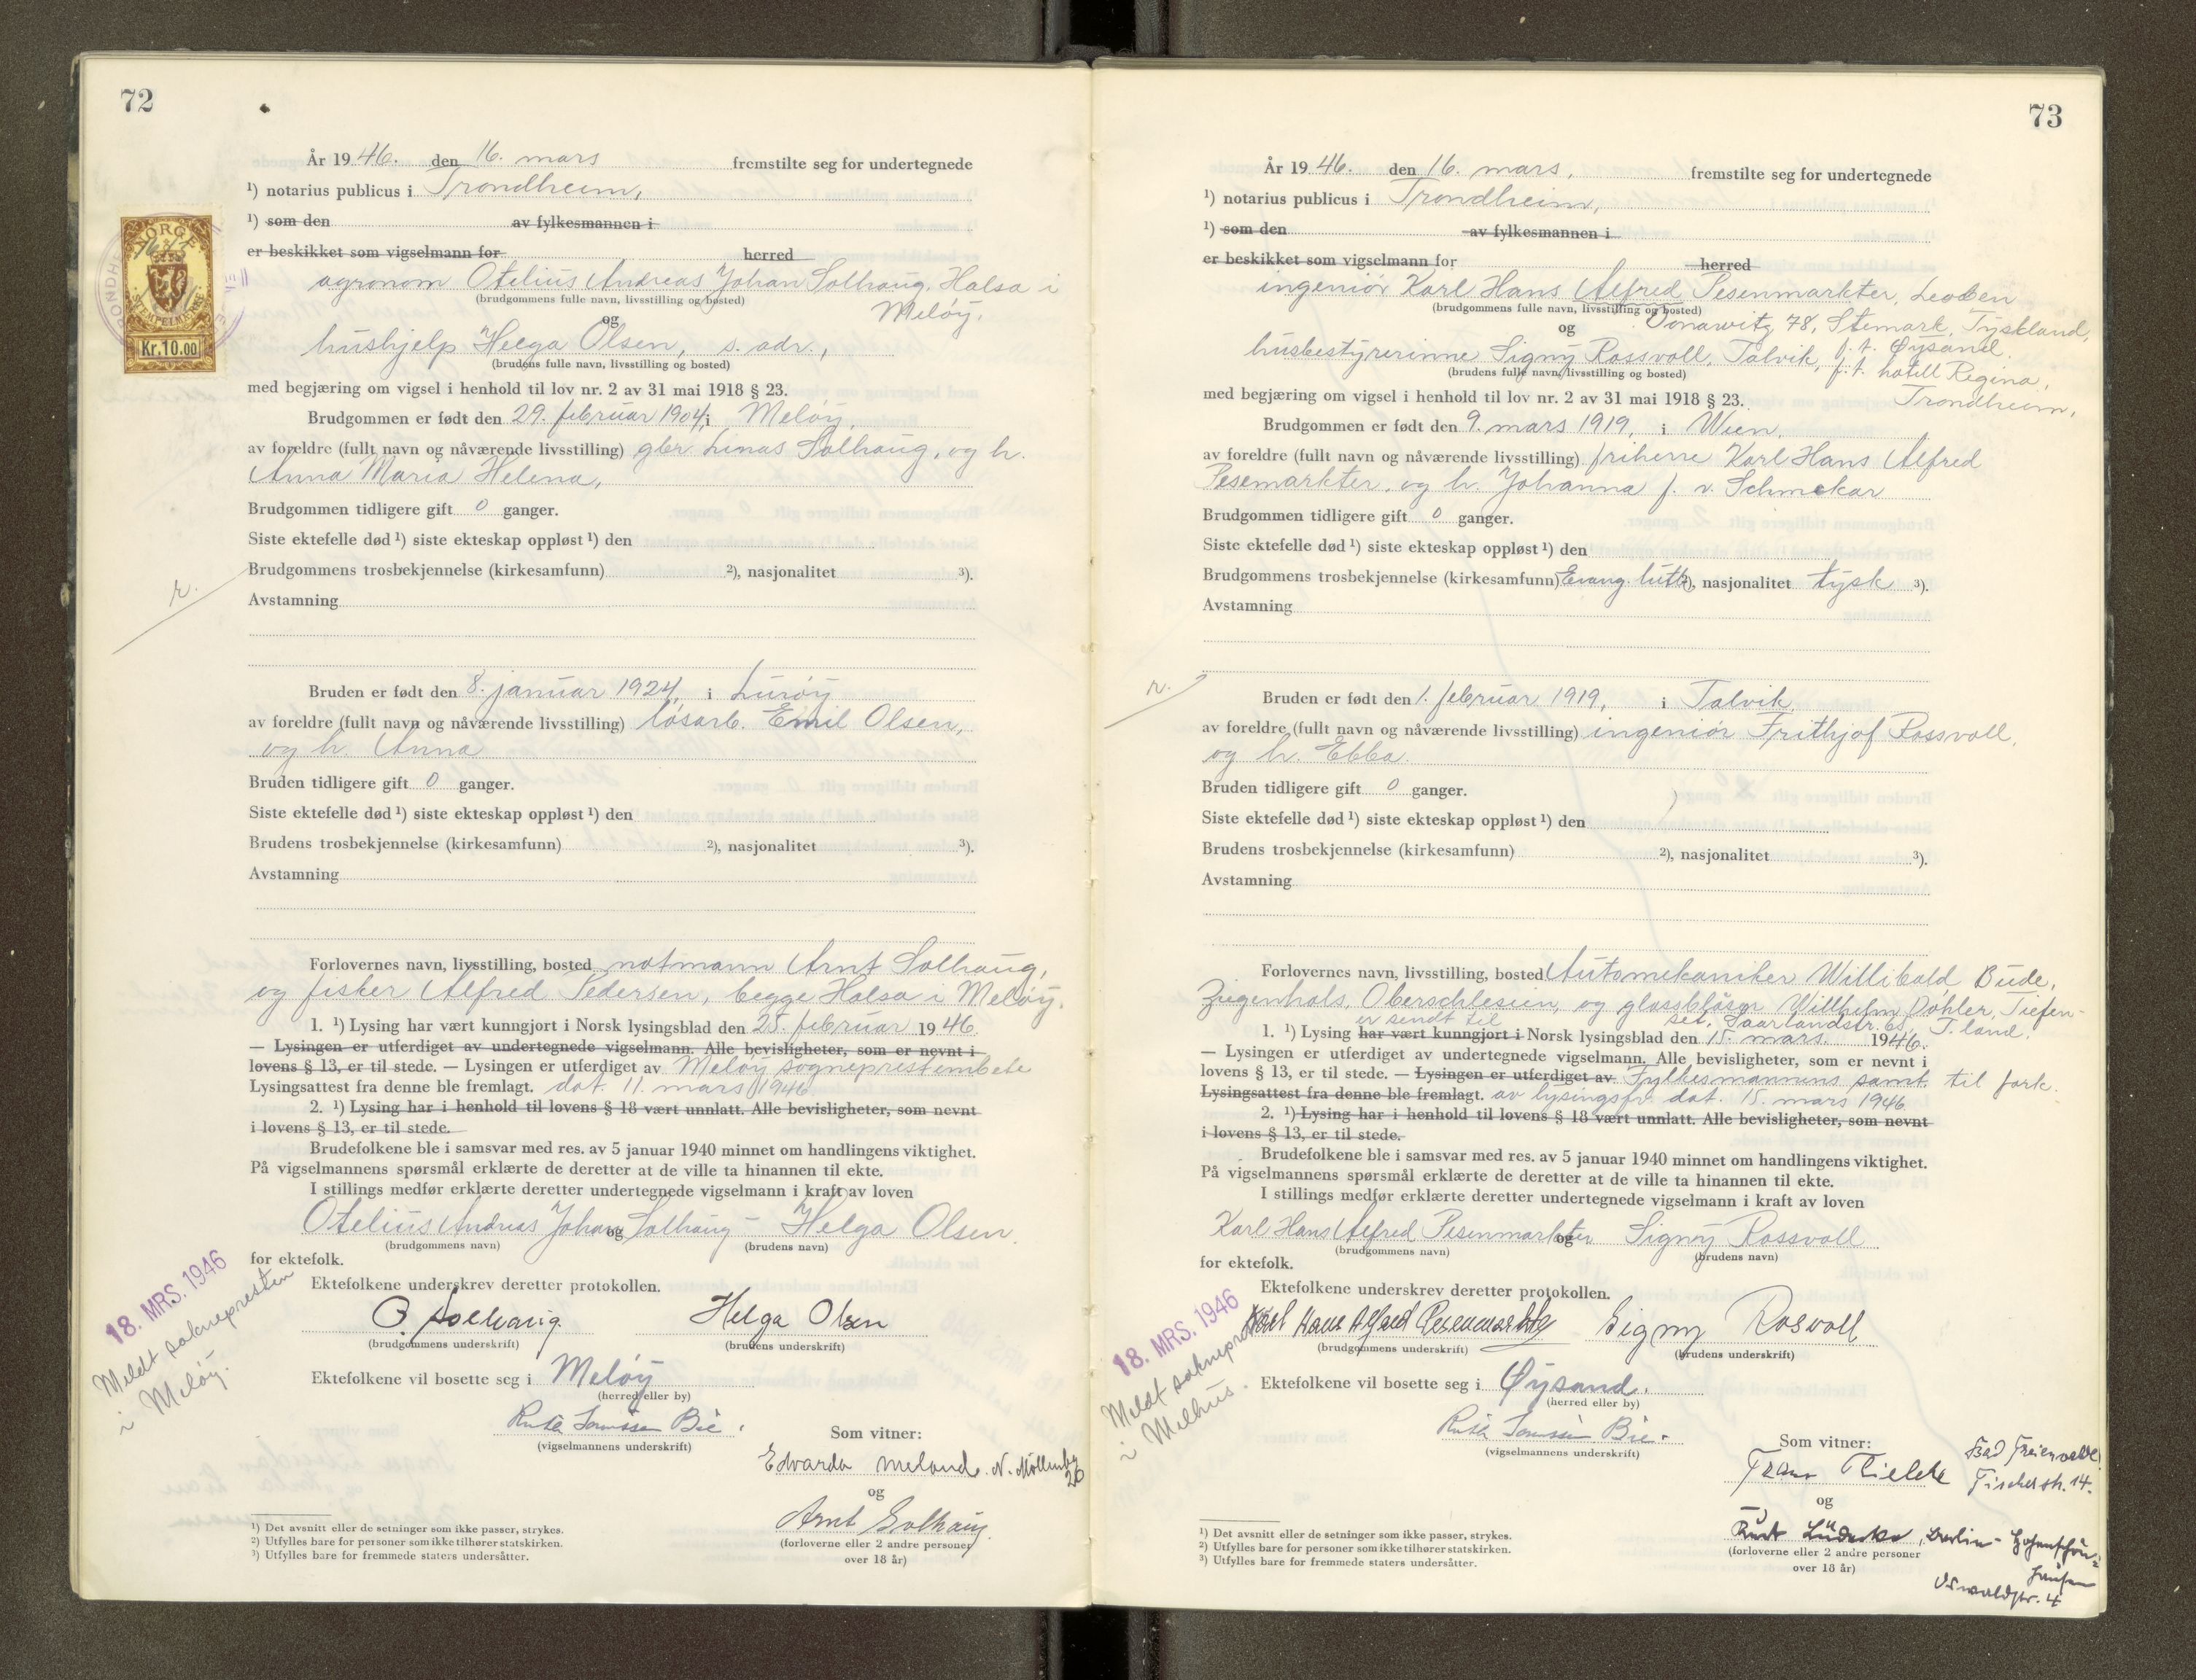 72
År 1946. den 16. mars fremstilte seg for undertegnede
¹) notarius publicus i Trondheim,
¹) som den av fylkesmannen i
er beskikket som vigselmann for herred
NORGE
STEMPELMERKE
Kr.10.00
agronom Otelius Andreas Johan Solhaug, Halsa i
(brudgommens fulle navn, livsstilling og bosted)
Meløy.
og
hushjelp Helga Olsen, s. adr.,
(brudens fulle navn, livsstilling og bosted)
med begjæring om vigsel i henhold til lov nr. 2 av 31 mai 1918 § 23.
Brudgommen er født den 29. februar 1904, i Meløy,
av foreldre (fullt navn og nåværende livsstilling) gbr. Linas Solhaug, og h.
Anna Maria Helena,
Brudgommen tidligere gift 0 ganger.
Siste ektefelle død ¹) siste ekteskap oppløst ¹) den
Brudgommens trosbekjennelse (kirkesamfunn) ²), nasjonalitet ³).
r.
Avstamning
Bruden er født den 8. januar 1924, i Lurøy
av foreldre (fullt navn og nåværende livsstilling) løsarb. Emil Olsen,
og h. Anna
Bruden tidligere gift 0 ganger.
Siste ektefelle død ¹) siste ekteskap oppløst ¹) den
Brudens trosbekjennelse (kirkesamfunn) ²), nasjonalitet ³).
Avstamning
Forlovernes navn, livsstilling, bosted notmann Arnt Solhaug,
og fisker Alfred Pedersen, begge Halsa i Meløy.
1. ¹) Lysing har vært kunngjort i Norsk lysingsblad den 25. februar 1946.
— Lysingen er utferdiget av undertegnede vigselmann. Alle bevisligheter, som er nevnt i
lovens § 13, er til stede. — Lysingen er utferdiget av Meløy sogneprestembete
Lysingsattest fra denne ble fremlagt. dat. 11. mars 1946.
2. ¹) Lysing har i henhold til lovens § 18 vært unnlatt. Alle bevisligheter, som nevnt
i lovens § 13, er til stede.
Brudefolkene ble i samsvar med res. av 5 januar 1940 minnet om handlingens viktighet.
På vigselmannens spørsmål erklærte de deretter at de ville ta hinannen til ekte.
I stillings medfør erklærte deretter undertegnede vigselmann i kraft av loven
Otelius Andreas Johan Solhaug og Helga Olsen.
(brudgommens navn) (brudens navn)
for ektefolk.
Ektefolkene underskrev deretter protokollen.
O. Solhaug. Helga Olsen
(brudgommens underskrift) (brudens underskrift)
18. MRS. 1946
Meldt soknepresten
i Meløy.
Ektefolkene vil bosette seg i Meløy
(herred eller by)
(vigselmannens underskrift)
Som vitner:
Edvarda Meland. N. Møllenbg
26
og
Arnt Solhaug.
(forloverne eller 2 andre personer
over 18 år)
¹) Det avsnitt eller de setninger som ikke passer, strykes.
²) Utfylles bare for personer som ikke tilhører statskirken.
³) Utfylles bare for fremmede staters undersåtter.
73
År 1946. den 16. mars, fremstilte seg for undertegnede
¹) notarius publicus i Trondheim,
¹) som den av fylkesmannen i
er beskikket som vigselmann for herred
ingeniør Karl Hans Alfred Pesenmarkter, Leoben
(brudgommens fulle navn, livsstilling og bosted)
Donawitz 78, Stemark, Tyskland,
og
f. t. Øysand.
husbestyrerinne Signy Rossvoll, Talvik, f. t. hotell Regina,
(brudens fulle navn, livsstilling og bosted)
Trondheim,
med begjæring om vigsel i henhold til lov nr. 2 av 31 mai 1918 § 23.
Brudgommen er født den 9. mars 1919, i Wien.
av foreldre (fullt navn og nåværende livsstilling) friherre Karl Hans Alfred
Pesemarkter, og h. Johanna f. v. Schmekar
Brudgommen tidligere gift 0 ganger.
Siste ektefelle død ¹) siste ekteskap oppløst ¹) den
Brudgommens trosbekjennelse (kirkesamfunn) Evang. luth. ²), nasjonalitet tysk ³).
Avstamning
r.
Bruden er født den 1. februar 1919, i Talvik,
av foreldre (fullt navn og nåværende livsstilling) ingeniør Frithjof Rossvoll,
og h. Ebba.
Bruden tidligere gift 0 ganger.
Siste ektefelle død ¹) siste ekteskap oppløst ¹) den
Brudens trosbekjennelse (kirkesamfunn) ²), nasjonalitet ³).
Avstamning
Forlovernes navn, livsstilling, bosted Automekaniker Willibald Bude,
Ziegenhals, Oberschlesien, og glassblåser Willhelm Döhler, Tiefen-
er sendt til set. Saarlandstr. 65, T.land.
1. ¹) Lysing har vært kunngjort i Norsk lysingsblad den 15. mars. 1946.
— Lysingen er utferdiget av undertegnede vigselmann. Alle bevisligheter, som er nevnt i
lovens § 13, er til stede. — Lysingen er utferdiget av Fylkesmannens samt. til fork.
Lysingsattest fra denne ble fremlagt. av lysingsfr. dat. 15. mars 1946
2. ¹) Lysing har i henhold til lovens § 18 vært unnlatt. Alle bevisligheter, som nevnt
i lovens § 13, er til stede.
Brudefolkene ble i samsvar med res. av 5 januar 1940 minnet om handlingens viktighet.
På vigselmannens spørsmål erklærte de deretter at de ville ta hinannen til ekte.
I stillings medfør erklærte deretter undertegnede vigselmann i kraft av loven
Karl Hans Alfred Pesenmarkter og Signy Rossvoll
(brudgommens navn) (brudens navn)
for ektefolk.
Ektefolkene underskrev deretter protokollen.
Karl Hans Alfred Pesenmarkter Signy Rosvoll
(brudgommens underskrift) (brudens underskrift)
18. MRS. 1946
Meldt soknepr.
i Melhus.
Ektefolkene vil bosette seg i Øysand.
(herred eller by)
(vigselmannens underskrift)
Som vitner:
Bad Freienwalde
Franz Thielcke Fischerstr. 14.
og
Kurt Lüdecke, Berlin- Hohenschön-
(forloverne eller 2 andre personer
hausen
over 18 år)
Oswaldstr. 4
¹) Det avsnitt eller de setninger som ikke passer, strykes.
²) Utfylles bare for personer som ikke tilhører statskirken.
³) Utfylles bare for fremmede staters undersåtter.